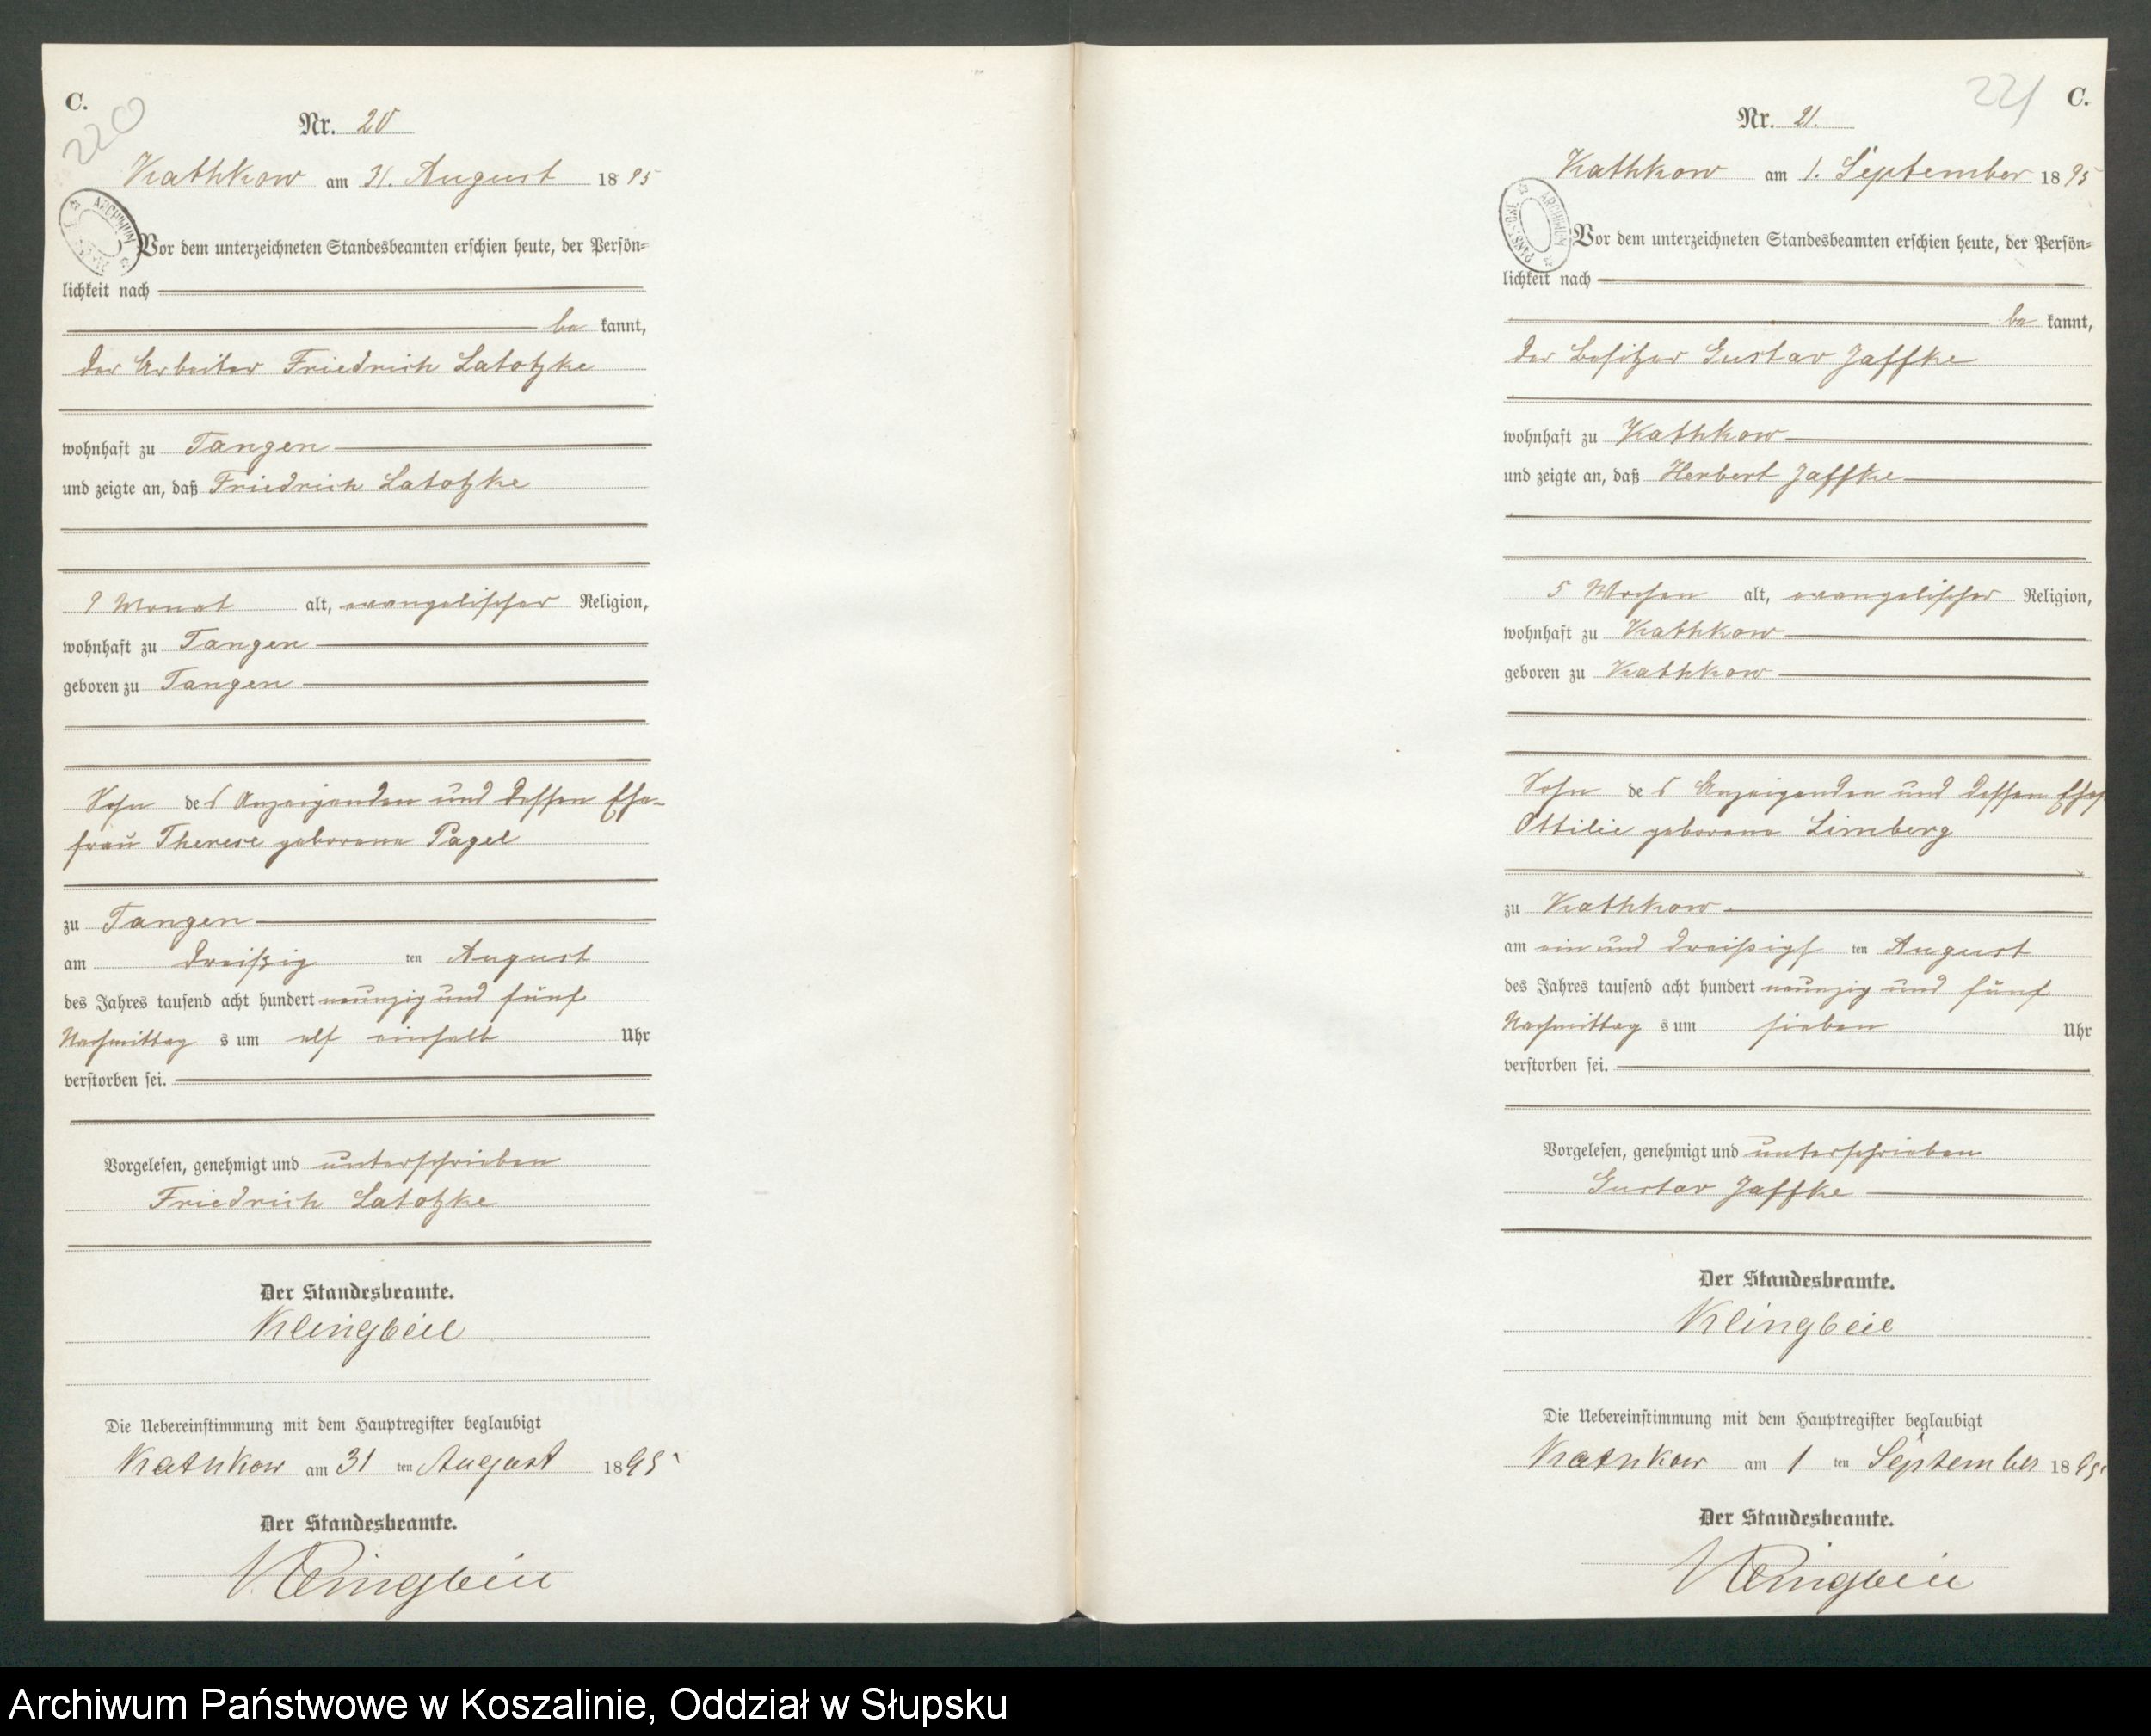 C.
220
Nr. 20
Kathkow am 31. August 1895
ARCHIWUM
Vor dem unterzeichneten Standesbeamten erschien heute, der Persön=
lichkeit nach
be kannt,
der Arbeiter Friedrich Latotzke
wohnhaft zu Tangen
und zeigte an, daß Friedrich Latotzke
9 Monat alt, evangelischer Religion,
wohnhaft zu Tangen
geboren zu Tangen
Sohn des Anzeigenden und dessen Ehe-
frau Therese geborene Pagel
zu Tangen
am dreißig ten August
des Jahres tausend acht hundert neunzig und fünf
Nachmittag s um elf einhalb Uhr
verstorben sei.
Vorgelesen, genehmigt und unterschrieben
Friedrich Latotzke
Der Standesbeamte.
Klingbeil
Die Uebereinstimmung mit dem Hauptregister beglaubigt
Kathkow am 31 ten August 1895
Der Standesbeamte.
Klingbeil
221 C.
Nr. 21.
Kathkow am 1. September 1895
ARCHIWUM PAŃSTWOWE
Vor dem unterzeichneten Standesbeamten erschien heute, der Persön=
lichkeit nach
be kannt,
der Besitzer Gustav Jaffke
wohnhaft zu Kathkow
und zeigte an, daß Herbert Jaffke
5 Wochen alt, evangelischer Religion,
wohnhaft zu Kathkow
geboren zu Kathkow
Sohn des Anzeigenden und dessen Ehefr
Ottilie geborene Limberg
zu Kathkow
am ein und dreißigs ten August
des Jahres tausend acht hundert neunzig und fünf
Nachmittag s um sieben Uhr
verstorben sei.
Vorgelesen, genehmigt und unterschrieben
Gustav Jaffke
Der Standesbeamte.
Klingbeil
Die Uebereinstimmung mit dem Hauptregister beglaubigt
Kathkow am 1 ten September 1895
Der Standesbeamte.
Klingbeil
Archiwum Państwowe w Koszalinie, Oddział w Słupsku